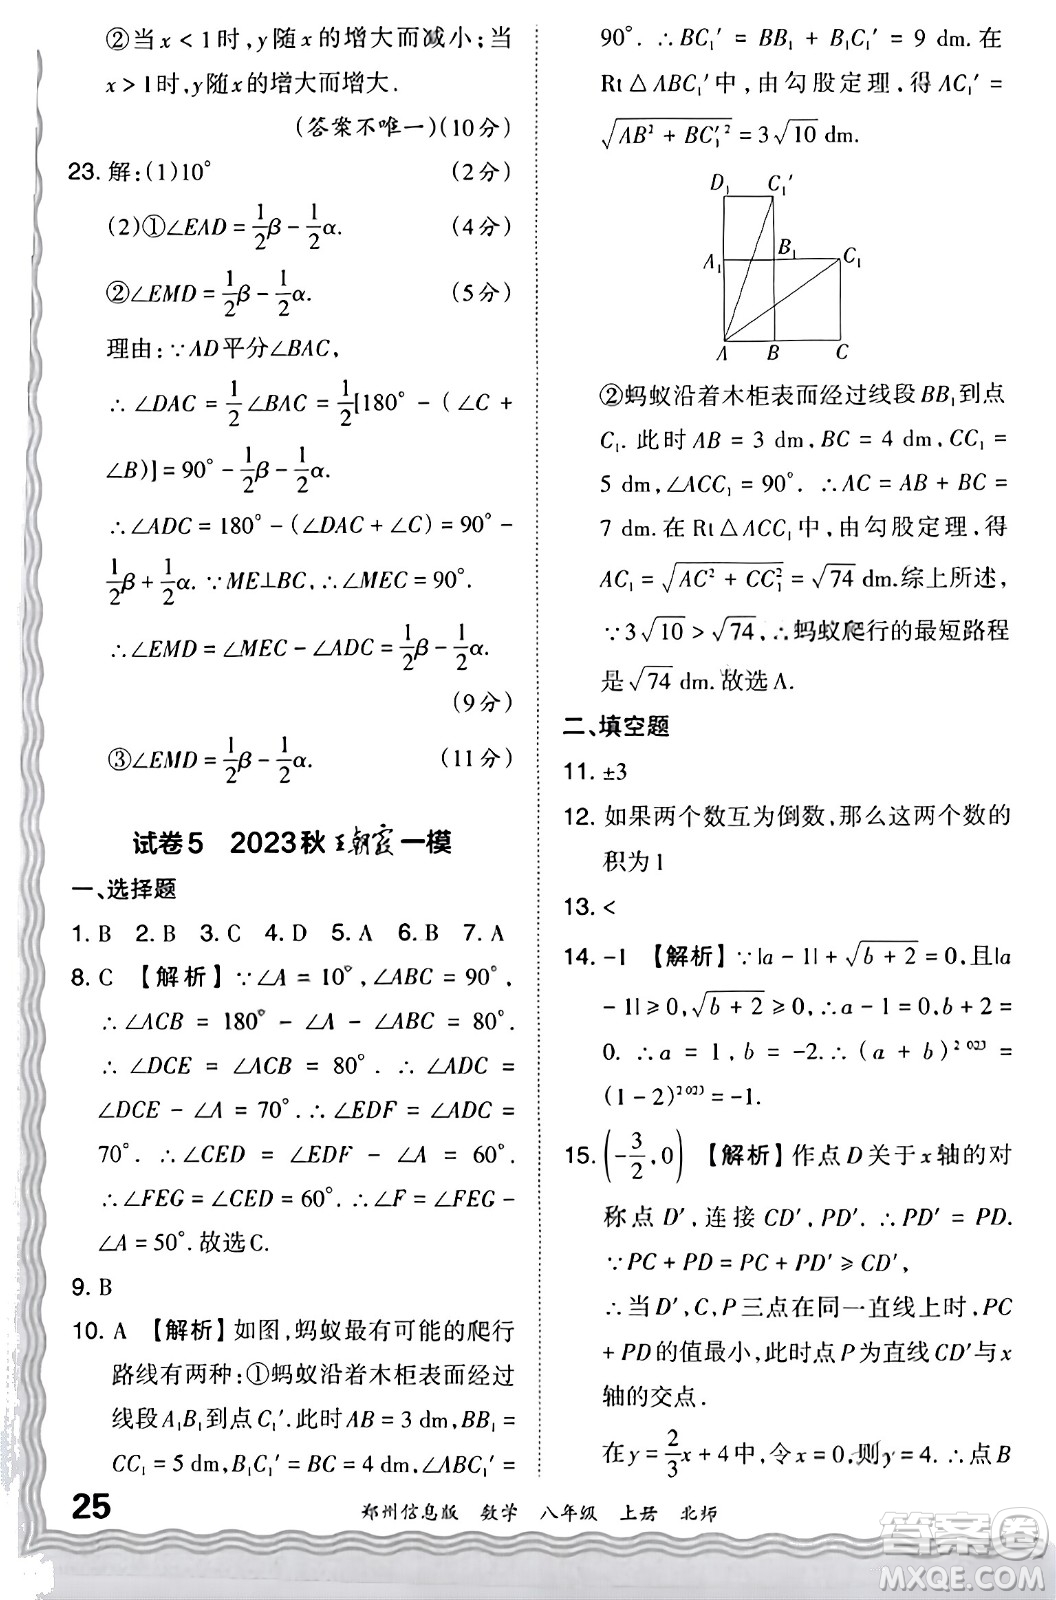 ②当 x < 1时,y随x的增大而减小;当
x > 1时,y随x的增大而增大.
(答案不唯一)(10分)
23. 解:(1)10° (2分)
(2)①∠EAD = 1/2β − 1/2α. (4分)
②∠EMD = 1/2β − 1/2α. (5分)
理由:∵AD平分∠BAC,
∴∠DAC = 1/2∠BAC = 1/2[180° − (∠C +
∠B)] = 90° − 1/2β − 1/2α.
∴∠ADC = 180° − (∠DAC + ∠C) = 90° −
1/2β + 1/2α. ∵ME⊥BC,∴∠MEC = 90°.
∴∠EMD = ∠MEC − ∠ADC = 1/2β − 1/2α.
(9分)
③∠EMD = 1/2β − 1/2α. (11分)
试卷5 2023秋王朝霞一模
一、选择题
1. B 2. B 3. C 4. D 5. A 6. B 7. A
8. C 【解析】∵∠A = 10°,∠ABC = 90°,
∴∠ACB = 180° − ∠A − ∠ABC = 80°.
∴∠DCE = ∠ACB = 80°. ∴∠ADC =
∠DCE − ∠A = 70°.∴∠EDF = ∠ADC =
70°.∴∠CED = ∠EDF − ∠A = 60°.
∴∠FEG = ∠CED = 60°.∴∠F = ∠FEG −
∠A = 50°.故选C.
9. B
10. A 【解析】如图,蚂蚁最有可能的爬行
路线有两种:①蚂蚁沿着木柜表面经过
线段A₁B₁到点C₁′.此时AB = 3 dm,BB₁ =
CC₁ = 5 dm,B₁C₁′ = BC = 4 dm,∠ABC₁′ =
90°. ∴BC₁′ = BB₁ + B₁C₁′ = 9 dm. 在
Rt△ABC₁′中,由勾股定理,得 AC₁′ =
√(AB² + BC₁′²) = 3√10 dm.
D₁ C₁′
A₁ B₁ C₁
A B C
②蚂蚁沿着木柜表面经过线段BB₁到点
C₁. 此时 AB = 3 dm,BC = 4 dm,CC₁ =
5 dm,∠ACC₁ = 90°. ∴AC = AB + BC =
7 dm.在 Rt△ACC₁中,由勾股定理,得
AC₁ = √(AC² + CC₁²) = √74 dm.综上所述,
∵3√10 > √74,∴蚂蚁爬行的最短路程
是√74 dm.故选A.
二、填空题
11. ±3
12. 如果两个数互为倒数,那么这两个数的
积为1
13. <
14. −1 【解析】∵|a − 1| + √(b + 2) = 0,且|a
− 1| ≥ 0,√(b + 2) ≥ 0,∴a − 1 = 0,b + 2 =
0. ∴a = 1,b = −2.∴(a + b)²⁰²³ =
(1 − 2)²⁰²³ = −1.
15. (−3/2,0) 【解析】作点D关于x轴的对
称点D′,连接CD′,PD′. ∴PD′ = PD.
∵PC + PD = PC + PD′ ≥ CD′,
∴当D′,C,P三点在同一直线上时,PC
+ PD的值最小,此时点P为直线CD′与x
轴的交点.
在y = 2/3x + 4中,令x = 0,则y = 4. ∴点B
25 郑州信息版 数学 八年级 上册 北师
答案圈
MXQE.COM